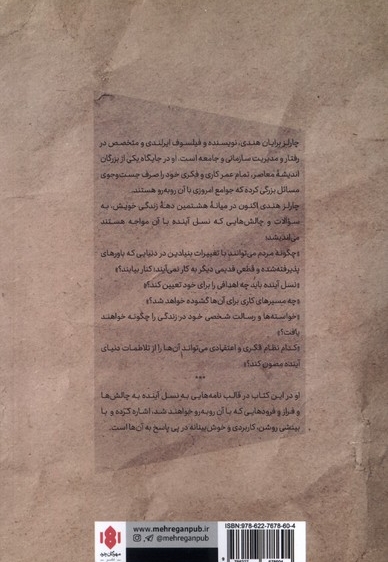 چارلز برایان هندی، نویسنده و فیلسوف ایرلندی و متخصص در
رفتار و مدیریت سازمانی و جامعه است. او در جایگاه یکی از بزرگان
اندیشهٔ معاصر، تمام عمر کاری و فکری خود را صرف جست‌وجوی
مسائل بزرگی کرده که جوامع امروزی با آن روبه‌رو هستند.
چارلز هندی اکنون در میانهٔ هشتمین دههٔ زندگی خویش، به
سؤالات و چالش‌هایی که نسل آینده با آن مواجه هستند
می‌اندیشد:
«چگونه مردم می‌توانند با تغییرات بنیادین در دنیایی که باورهای
پذیرفته‌شده و قطعی قدیمی دیگر به کار نمی‌آیند؛ کنار بیایند؟»
«نسل آینده باید چه اهدافی را برای خود تعیین کند؟»
«چه مسیرهای کاری برای آن‌ها گشوده خواهد شد؟»
«خواسته‌ها و رسالت شخصی خود در زندگی را چگونه خواهند
یافت؟»
«کدام نظام فکری و اعتقادی می‌تواند آن‌ها را از تلاطمات دنیای
آینده مصون کند؟»
***
او در این کتاب در قالب نامه‌هایی به نسل آینده به چالش‌ها
و فراز و فرودهایی که با آن روبه‌رو خواهند شد، اشاره کرده و با
بینشی روشن، کاربردی و خوش‌بینانه در پی پاسخ به آن‌ها است.
www.mehreganpub.ir
@mehreganpub
ISBN:978-622-7678-60-4